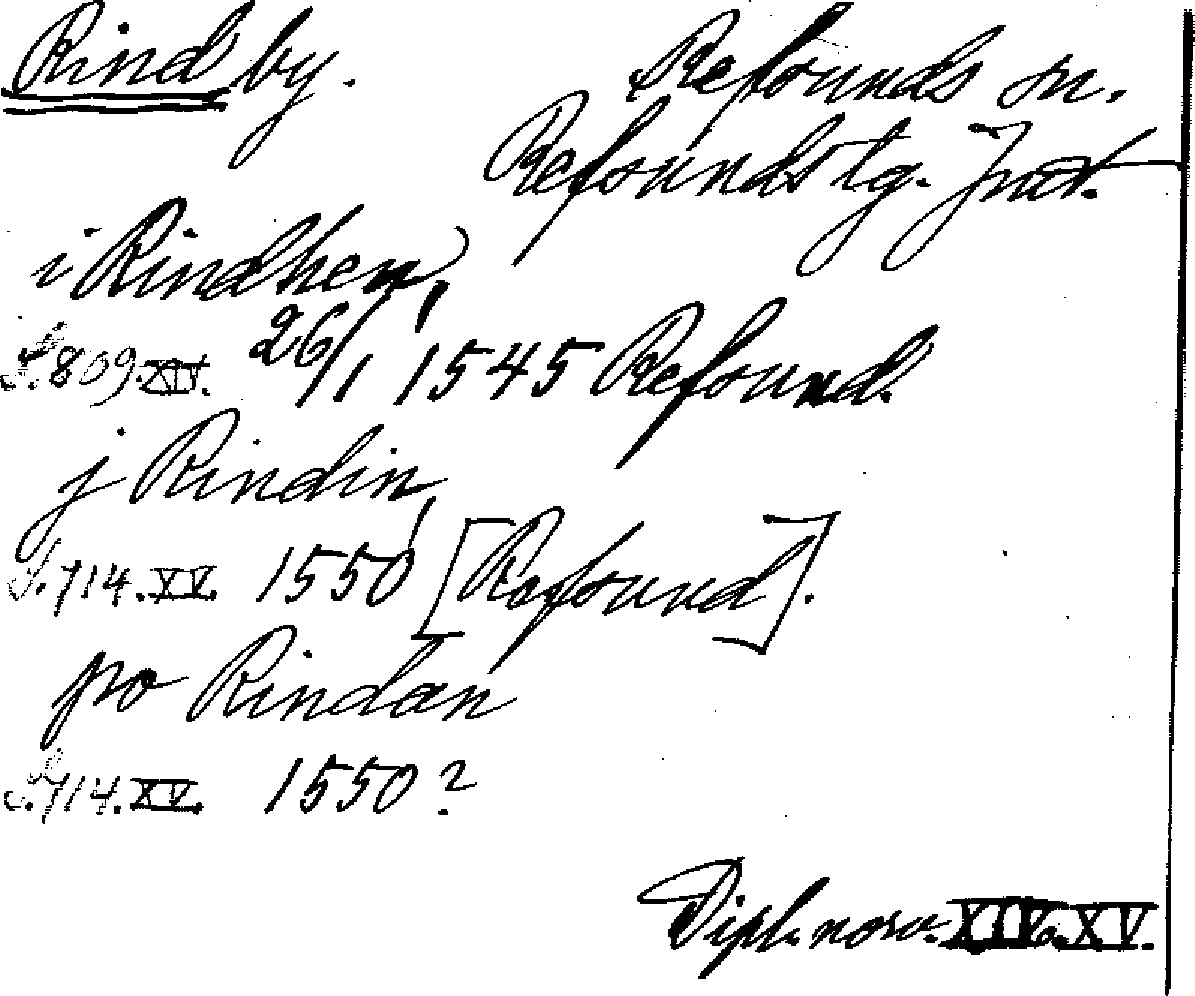 Rind by. Refsunds sn.
Refsunds tg. Jmt.
i Rindhen,
S. 809. XIV. 26/1 1545 Refsund.
j Rindin,
S. 714. XV. 1550 [Refsund].
po Rindan
S. 714. XV. 1550?
Dipl. norv. XIV. XV.